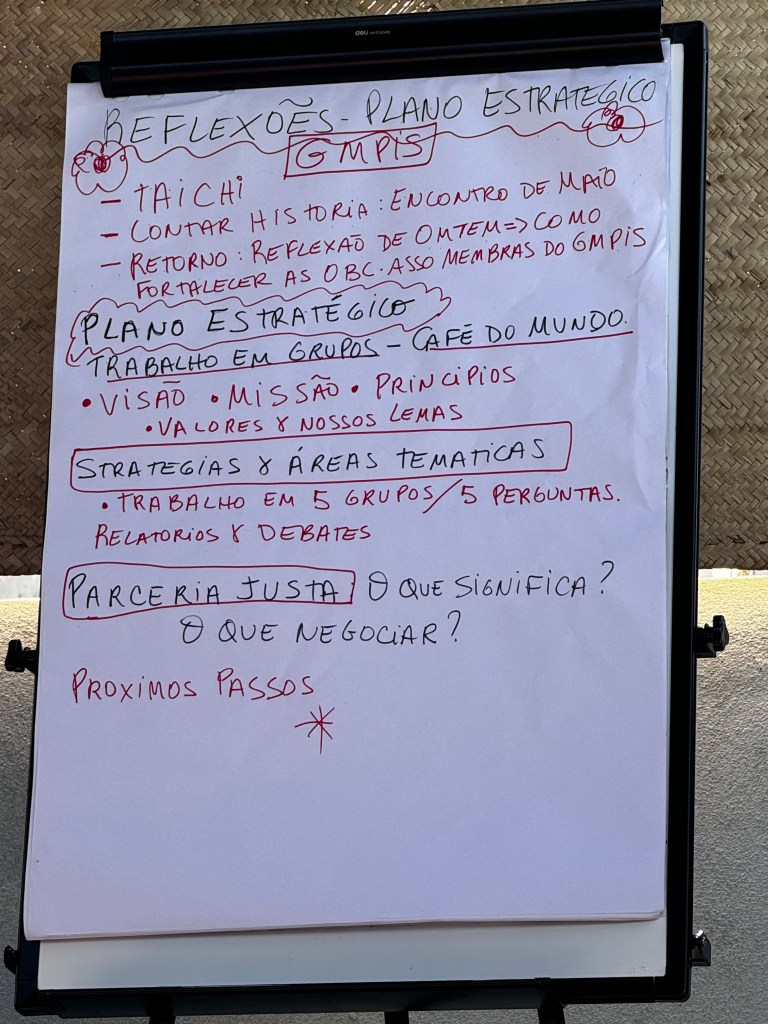 deli
REFLEXÕES - PLANO ESTRATEGICO
GMPIS
- TAICHI
- CONTAR HISTORIA: ENCONTRO DE MAIO
- RETORNO: REFLEXÃO DE OMTEM => COMO
FORTALECER AS OBC. ASSO MEMBRAS DO GMPIS
PLANO ESTRATÉGICO
TRABALHO EM GRUPOS - CAFÉ DO MUNDO.
• VISÃO • MISSÃO • PRINCIPIOS
• VALORES & NOSSOS LEMAS
STRATEGIAS & ÁREAS TEMATICAS
• TRABALHO EM 5 GRUPOS / 5 PERGUNTAS.
RELATORIOS & DEBATES
PARCERIA JUSTA O QUE SIGNIFICA?
O QUE NEGOCIAR?
PROXIMOS PASSOS